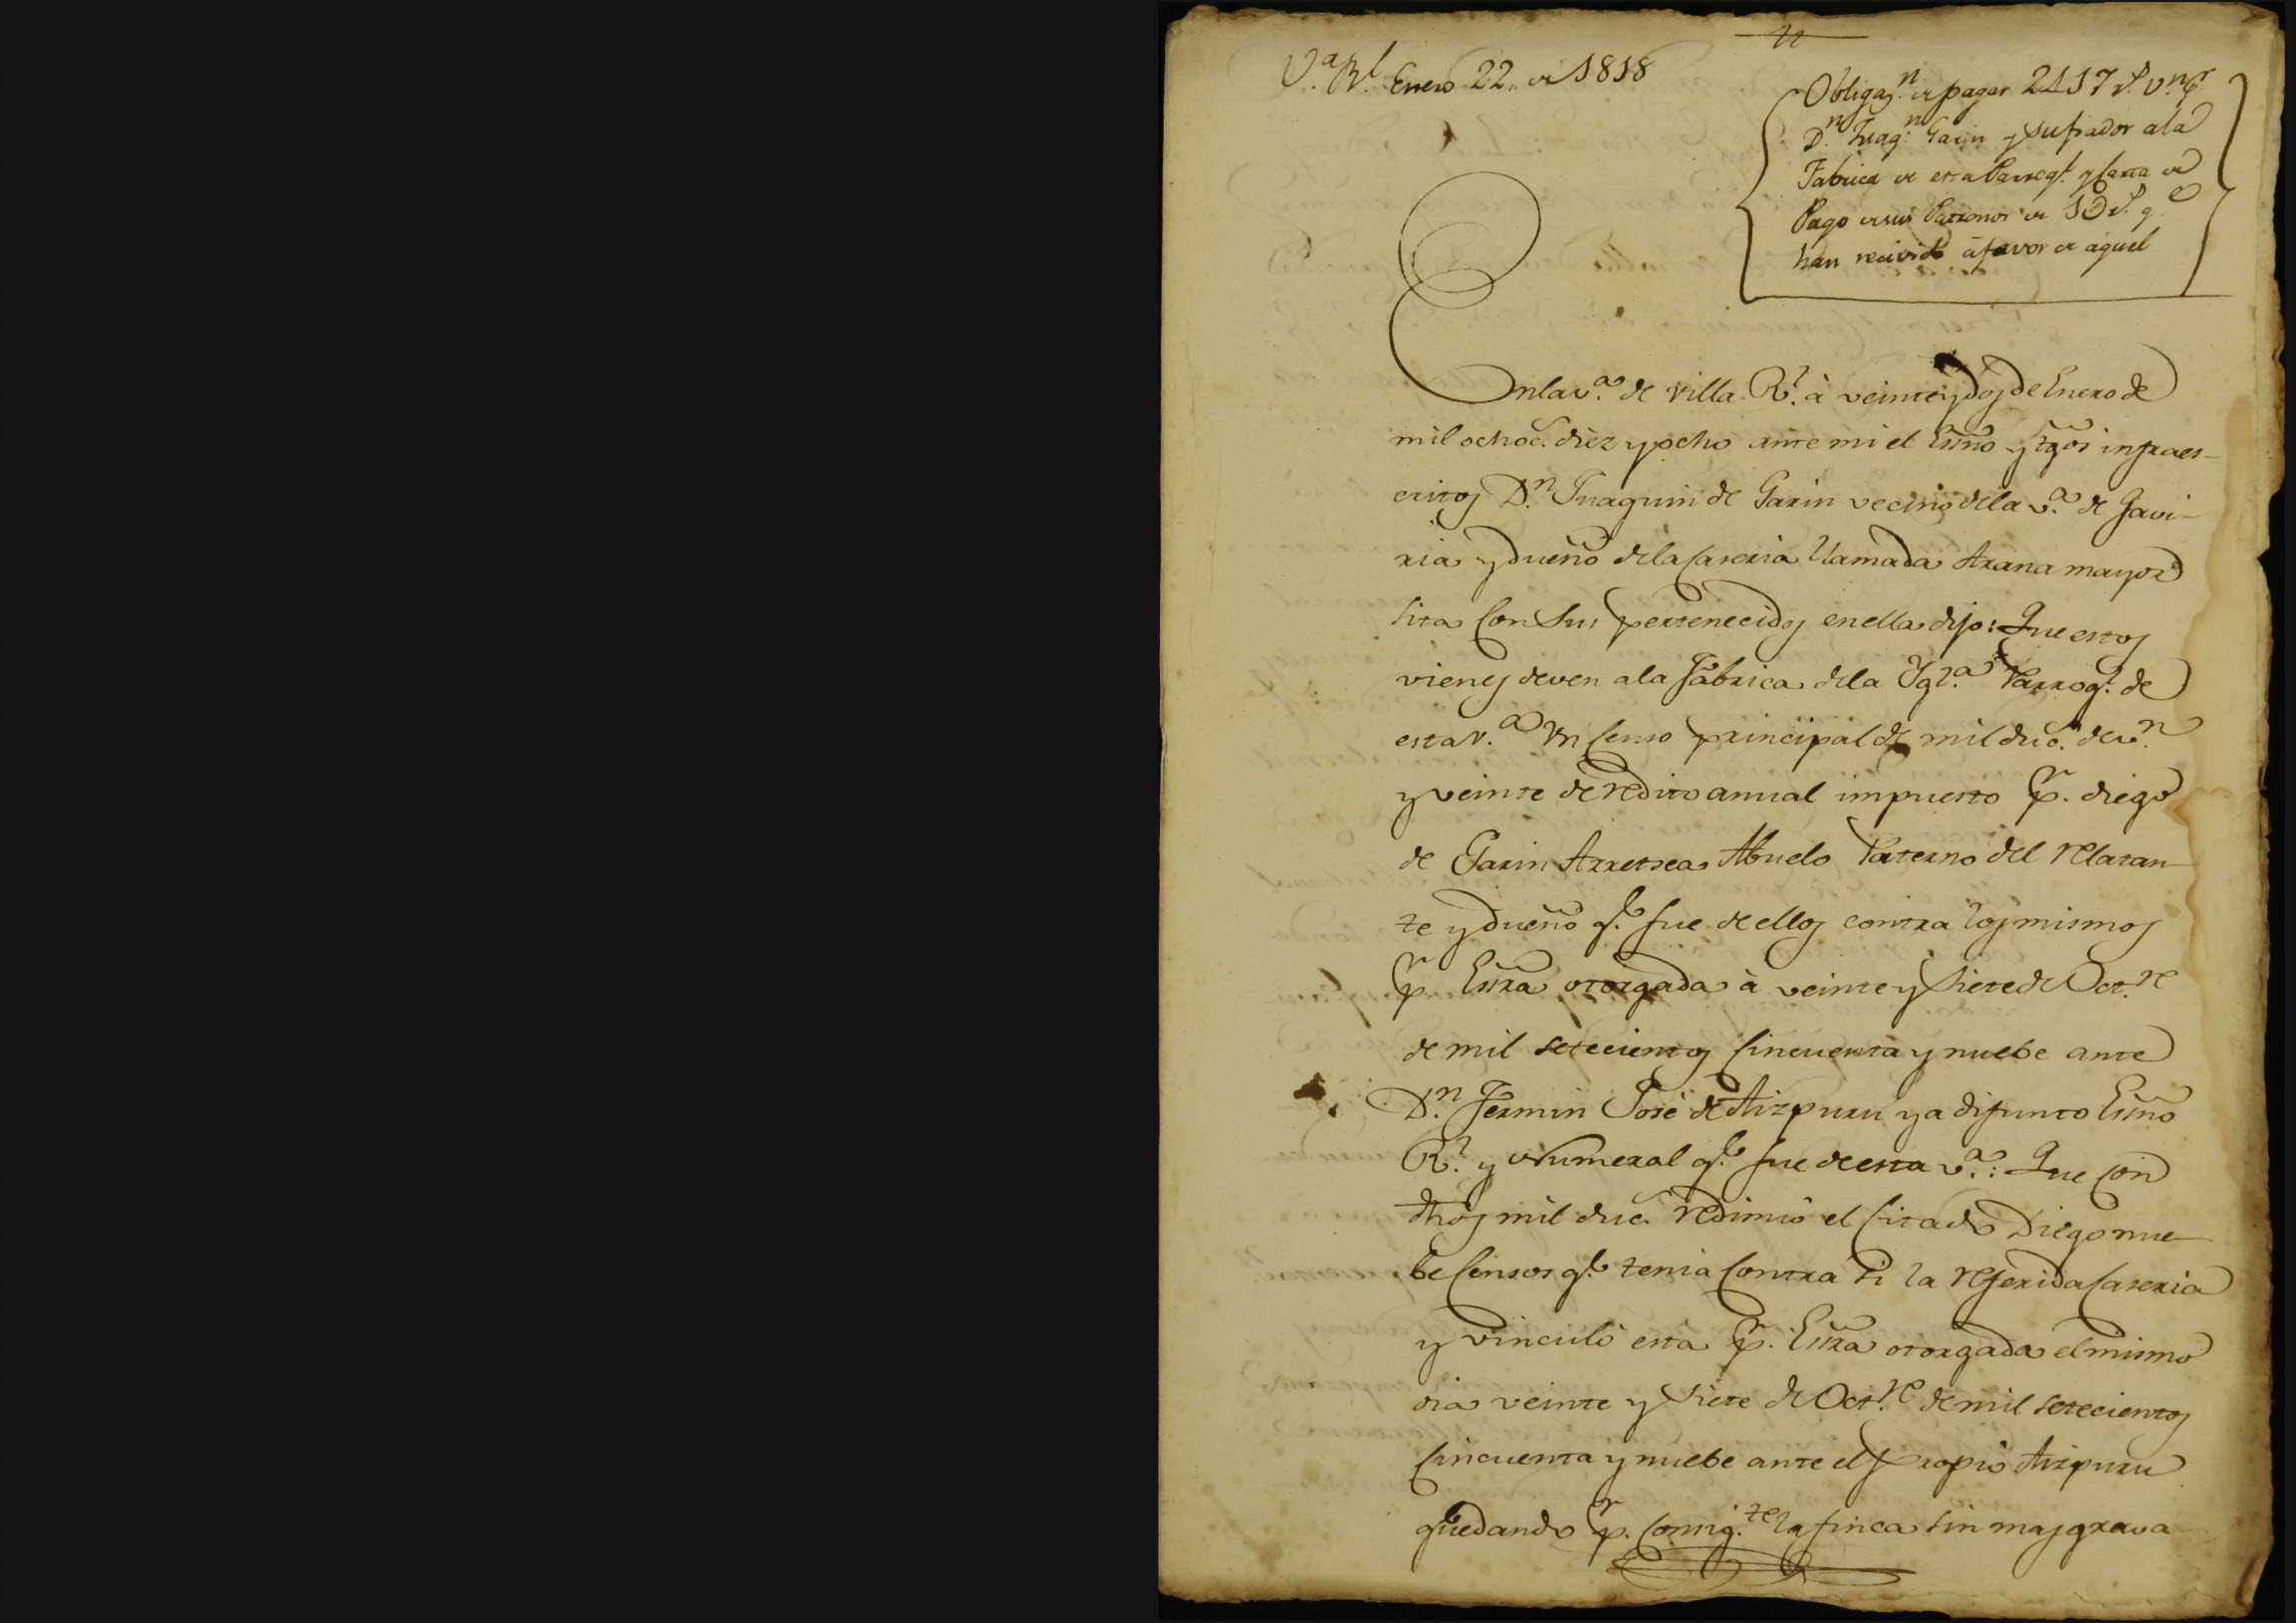 11
V.ª R.l Enero 22,, de 1818
Obligaz.n de pagar 2417 r.s v.n p.r
D.n Juaq.n Garin y su fiador a la
Fabrica de esta Parroq.l y Carta de
Pago de sus Patronos de 1D r.s q.e
han recivido á favor de aquel
En la v.ª de Villa R.l à veinte y dos de Enero de
mil ochoc.s diez y ocho ante mi el Essno y tgos infraes-
critos D.n Juaquin de Garin vecino de la v.ª de Gavi-
ria y dueño de la Caseria llamada Arana mayor
sita con sus pertenecidos en ella dijo: Que estos
vienes deven a la Fabrica de la Ygl.ª Parroq.l de
esta v.ª un censo principal de mil duc.s de v.n
y veinte de redito anual impuesto p.r diego
de Garin Arretsea Abuelo Paterno del relatan-
te y dueño q.e fue de ellos contra los mismos
p.r Essra otorgada à veinte y siete de Oct.re
de mil setecientos cincuenta y nuebe ante
D.n Fermin José de Aizpuru ya difunto Essno
R.l y Numeral q.e fue de esta v.ª: Que con
dhos mil duc.s redimió el citado Diego nue-
be censos q.e tenia contra si la referida Caseria
y vinculó esta p.r Essra otorgada el mismo
dia veinte y siete de Oct.re de mil setecientos
cincuenta y nuebe ante el propio Aizpuru
quedando p.r consig.te la finca sin mas grava